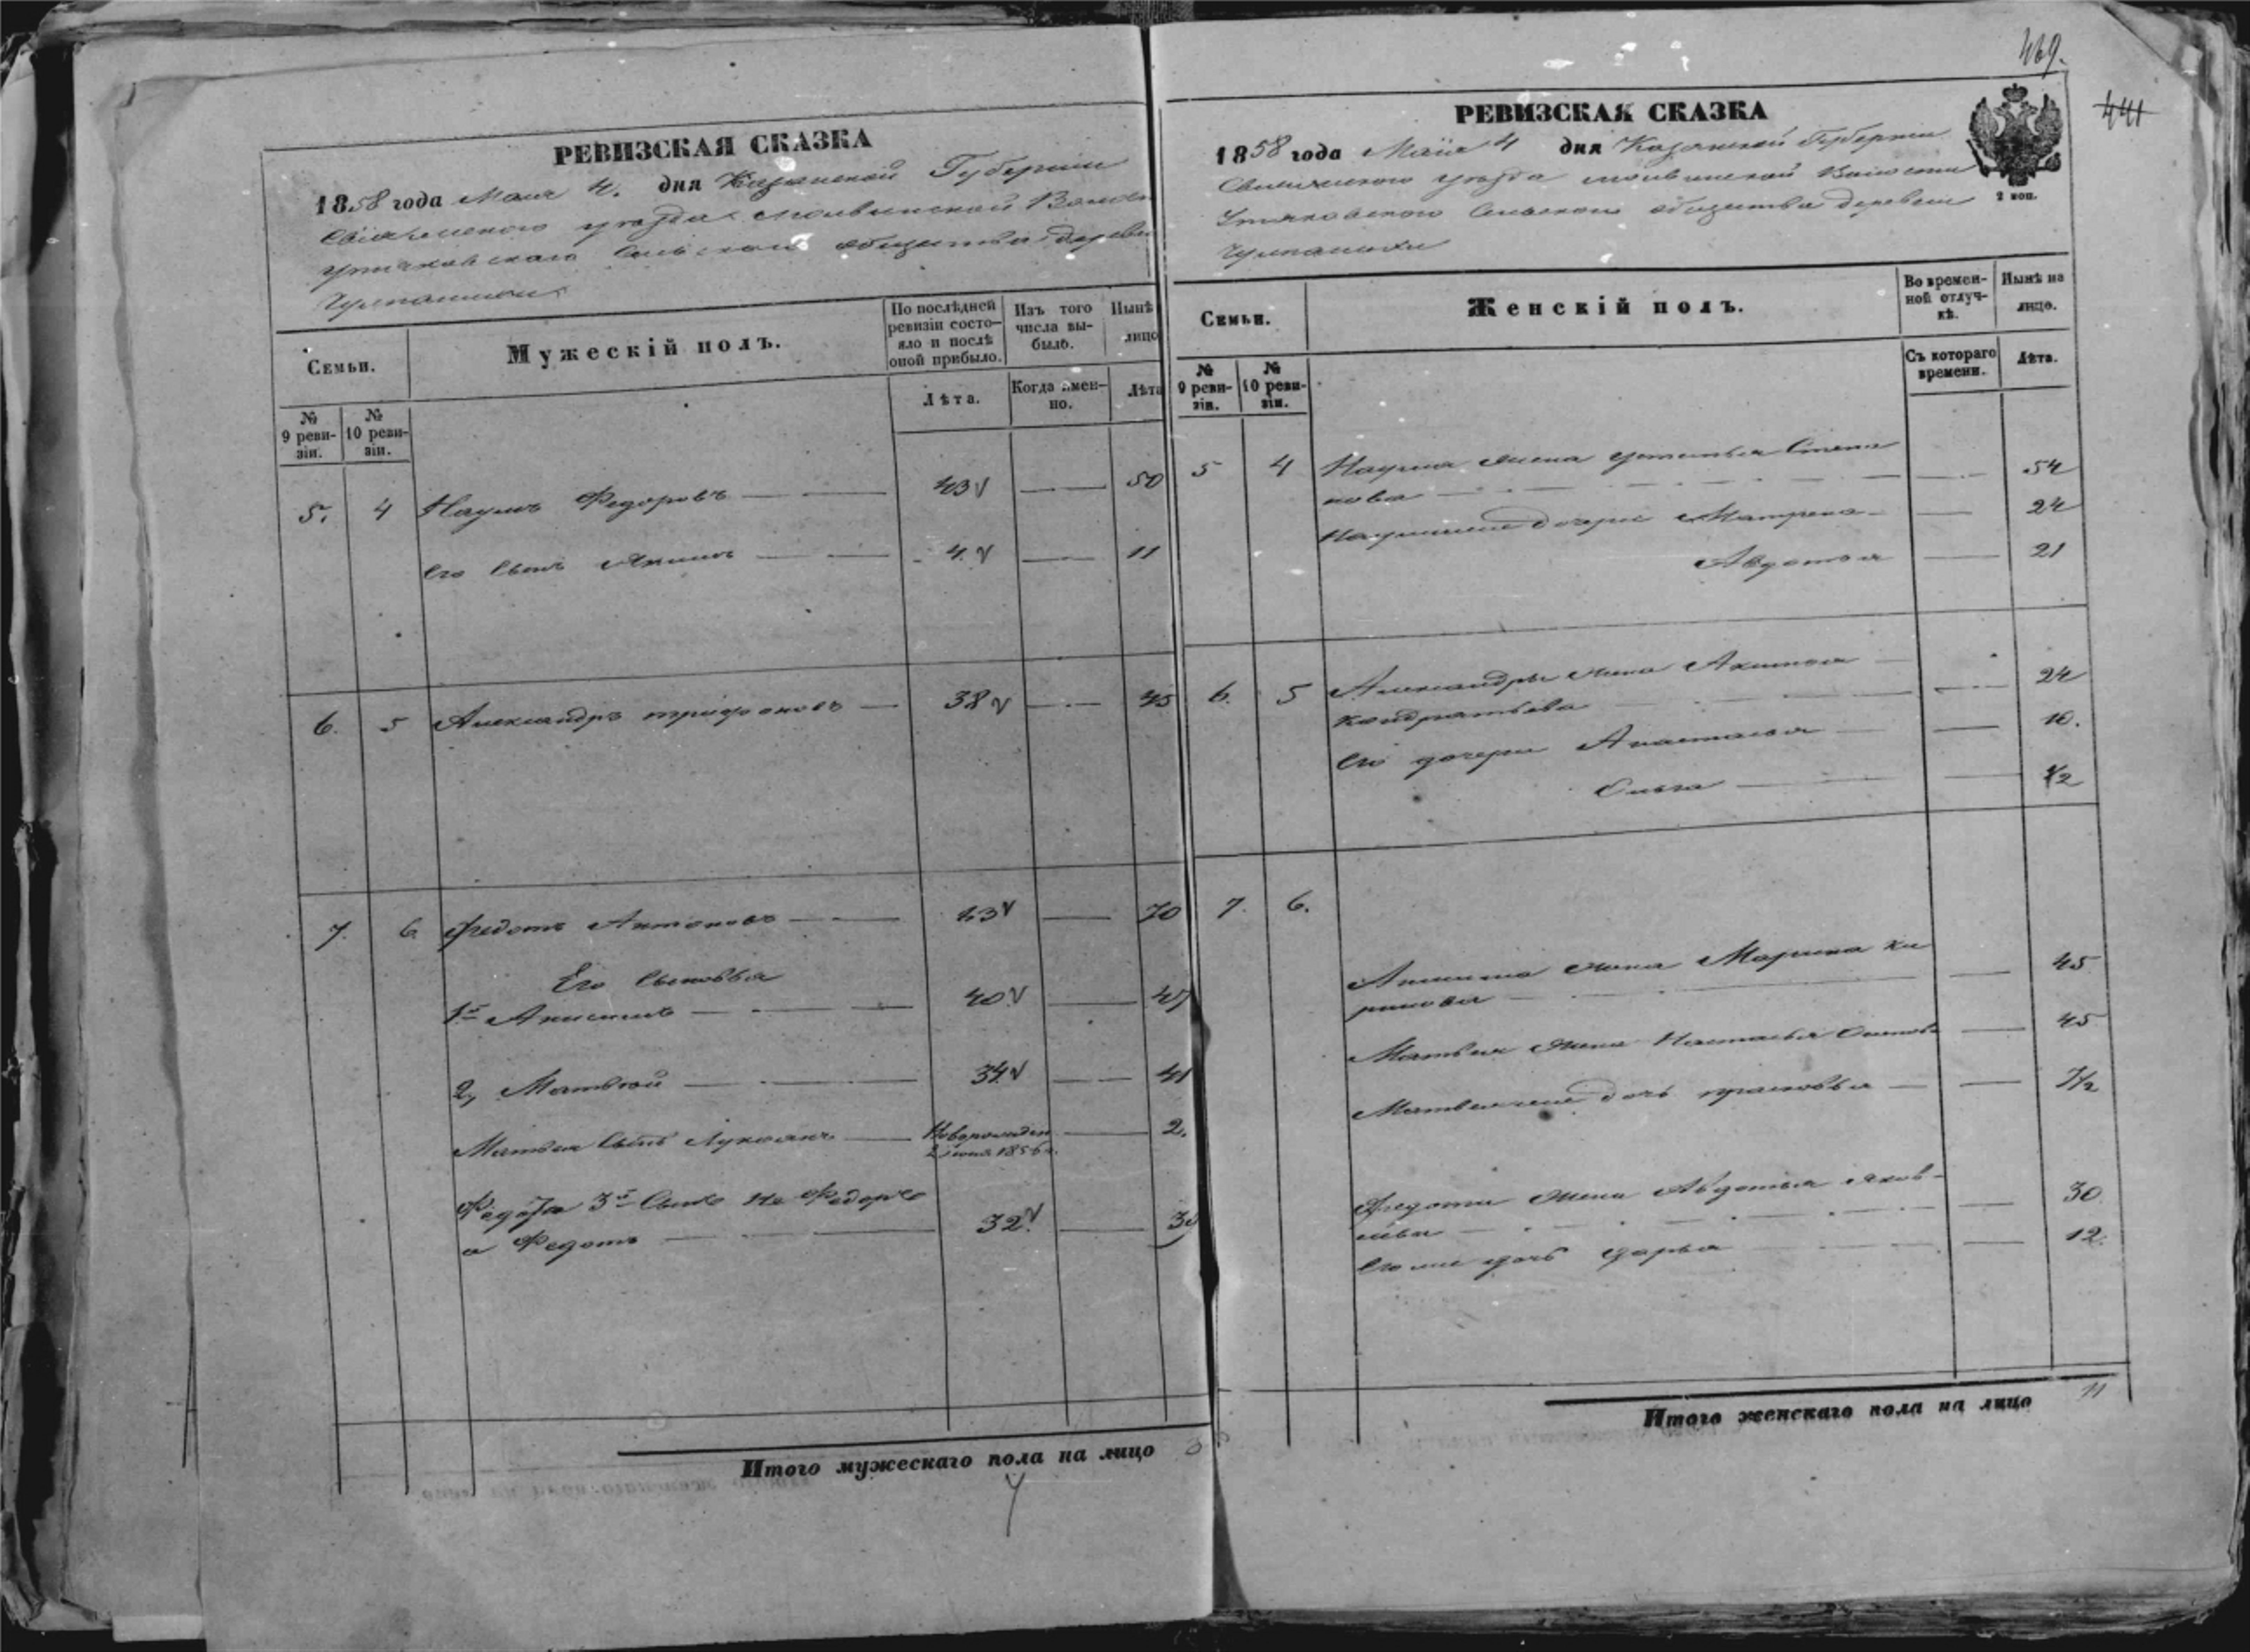 РЕВИЗСКАЯ СКАЗКА
1858 года Мая 4. дня Казанской Губерніи
Свіяжскаго уѣзда Молвинской Волости
Утяковскаго Сельскаго общества деревни
Семьи.
Мужескій полъ.
По послѣдней ревизіи состо-
яло и послѣ оной прибыло.
Изъ того числа вы-
было.
Нынѣ
лицо
№ 9 реви-
зіи.
№ 10 реви-
зіи.
Лѣта.
Когда имен-
но.
Лѣта
5. 4 Наумъ Федоровъ 43 50
Его Сынъ Акимъ 4 11
6. 5 Александръ трифоновъ 38 45
7. 6 Федотъ Антоновъ 63 70
Его Сыновья
1й Анисимъ 40 47
2, Матвѣй 34 41
Матвея Сынъ Лукоянъ Новорожден 2.
1856
Федота 3й Сынъ не Федоръ
а Федотъ 32
Итого мужескаго пола на лицо
469.
441
РЕВИЗСКАЯ СКАЗКА
2 коп.
1858 года Маія 4 дня Казанской Губерніи
Свіяжскаго уѣзда Молвинской Волости
Утяковскаго Сельскаго общества деревни
Семьи.
Женскій полъ.
Во времен-
ной отлуч-
кѣ.
Нынѣ на
лицо.
№ 9 реви-
зіи.
№ 10 реви-
зіи.
Съ котораго
времени.
Лѣта.
5 4 Наума жена Устинья Степа
нова 54
Наумовые дочери Матрена 24
Авдотья 21
6. 5 Александры жена Акулина
Кондратьева 24
Его дочери Анастасья 10.
Ольга 1/2
7. 6.
Анисима жена Марина Ки
рилова 45
Матвея жена Настасья Осипова 45
Матвея дочь прасковья 7 1/2
Федота жена Авдотья Яков-
лева 30.
Его же дочь Дарья 12.
Итого женскаго пола на лицо 11